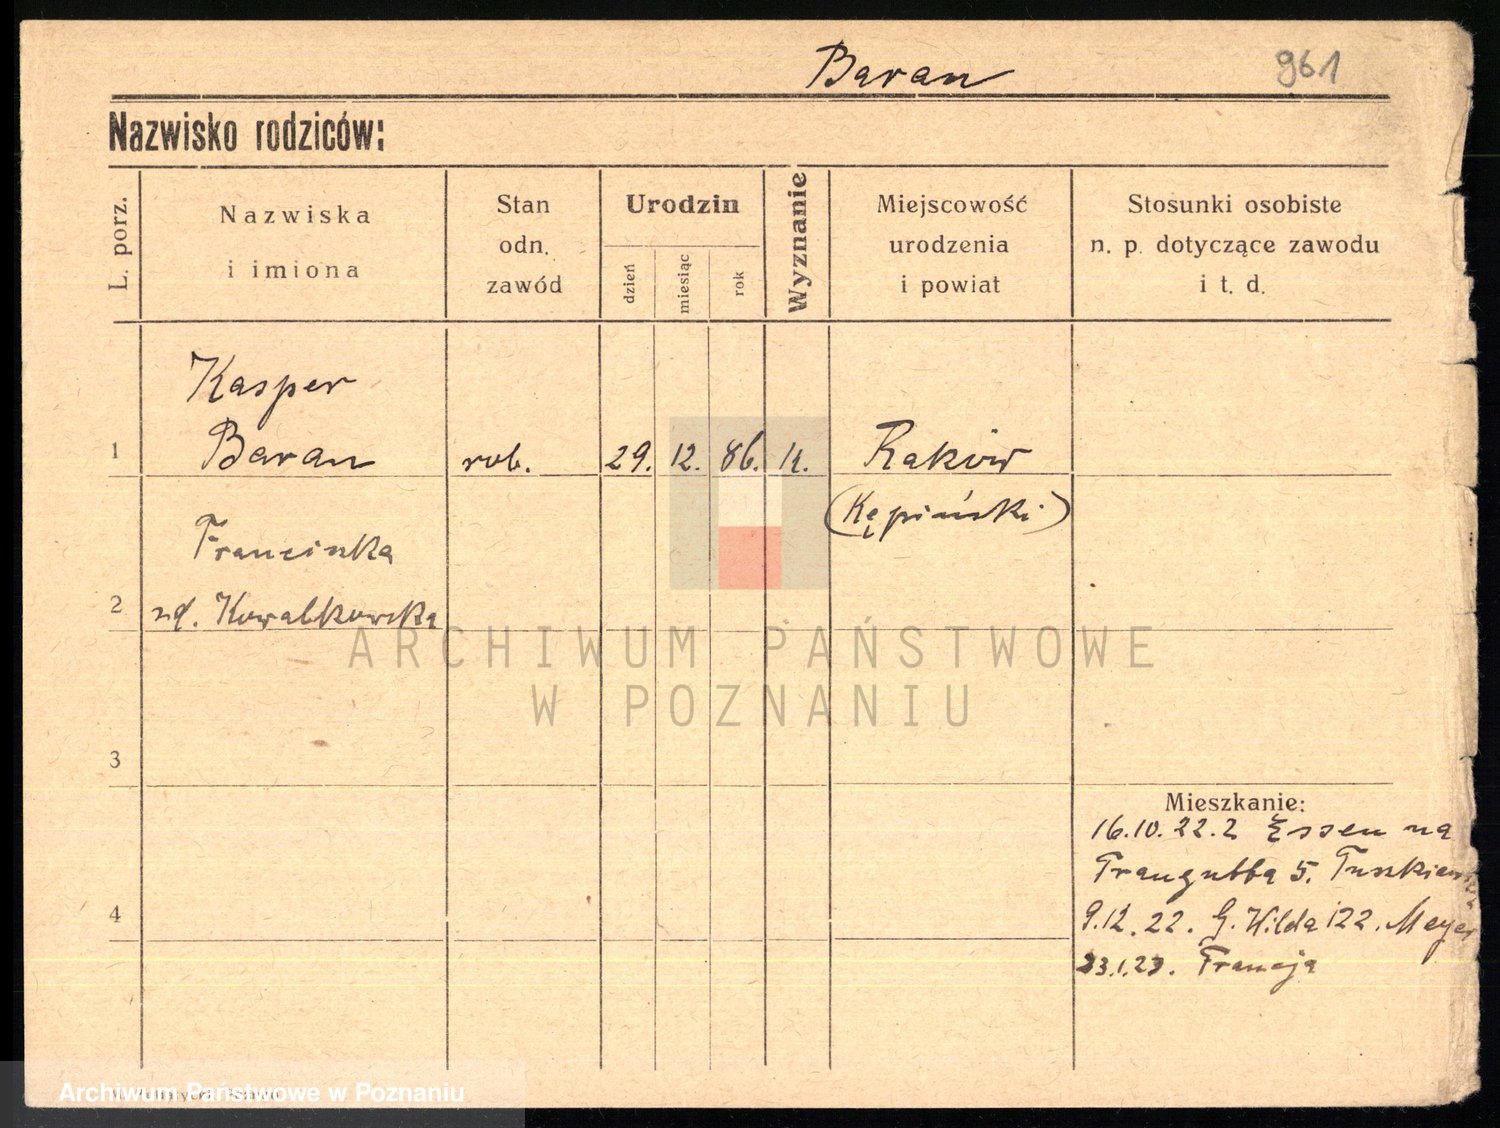 Baran
961
Nazwisko rodziców:
L. porz.
Nazwiska
i imiona
Stan
odn.
zawód
Urodzin
dzień
miesiąc
rok
Wyznanie
Miejscowość
urodzenia
i powiat
Stosunki osobiste
n. p. dotyczące zawodu
i t. d.
Kasper
1 Baran rob. 29. 12. 86. k. Raków
(Kępiński)
Franciszka
2 zd. Kowalkowska
ARCHIWUM PAŃSTWOWE
W POZNANIU
3
Mieszkanie:
16.10.22. z Essen na
Traugutta 5.
4
9.12.22. G. Wilda 122. Meyer
23.1.23. Francja
Archiwum Państwowe w Poznaniu